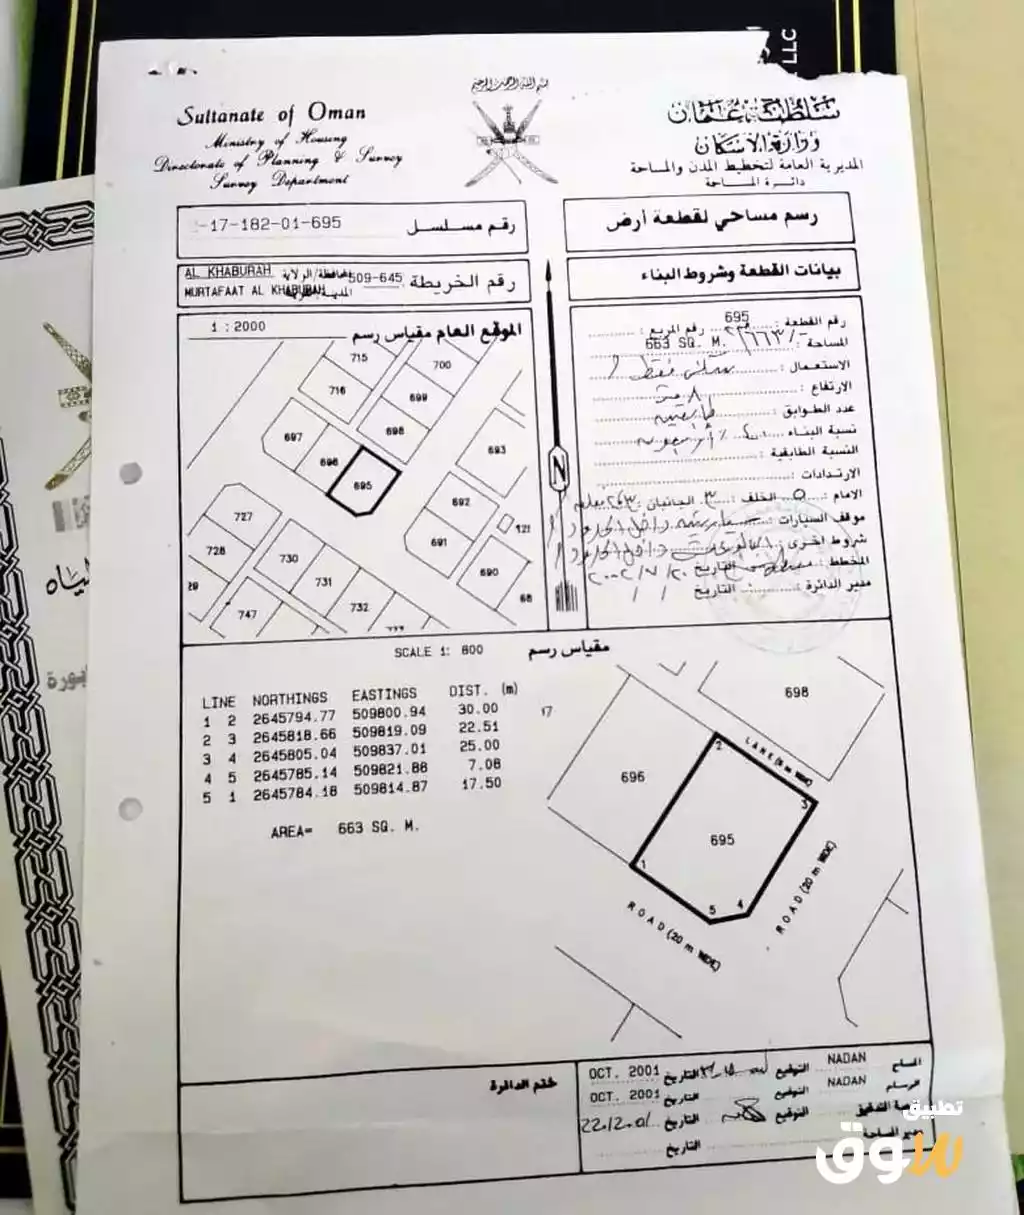 LLC
بسم الله الرحمن الرحيم
Sultanate of Oman
Ministry of Housing
Directorate of Planning & Survey
Survey Department
سلطنة عمان
وزارة الإسكان
المديرية العامة لتخطيط المدن والمساحة
دائرة المساحة
-17-182-01-695 رقم مسلسل
رسم مساحي لقطعة أرض
AL KHABURAH المحافظة/الولاية
MURTAFAAT AL KHABURAH
509-645 رقم الخريطة
بيانات القطعة وشروط البناء
1 : 2000 الموقع العام مقياس رسم
رقم القطعة : 695 رقم المربع :
المساحة : 663 SQ. M.
الاستعمال :
الارتفاع :
عدد الطوابق :
نسبة البناء :
النسبة الطابقية :
الارتدادات :
الامام : الخلف : ٣ الجانبان :
موقف السيارات :
شروط اخرى :
المخطط : التاريخ ٢٠٠٢/٧/٢٠
مدير الدائرة : التاريخ / /
715
700
716
699
697
698
696
695
693
692
727
121
691
728
730
690
731
29
732
68
747
733
N
SCALE 1: 800 مقياس رسم
LINE NORTHINGS EASTINGS DIST. (m)
1 2 2645794.77 509800.94 30.00
2 3 2645818.66 509819.09 22.51
3 4 2645805.04 509837.01 25.00
4 5 2645785.14 509821.88 7.08
5 1 2645784.18 509814.87 17.50
AREA= 663 SQ. M.
17
698
696
695
LANE (6 m WIDE)
ROAD (20 m WIDE)
ROAD (20 m WIDE)
1
2
3
4
5
ختم الدائرة
المساح NADAN التوقيع التاريخ OCT. 2001
الرسام NADAN التوقيع التاريخ OCT. 2001
التوقيع التاريخ 22.12.01
مدير المساحة التاريخ
تطبيق
سوق